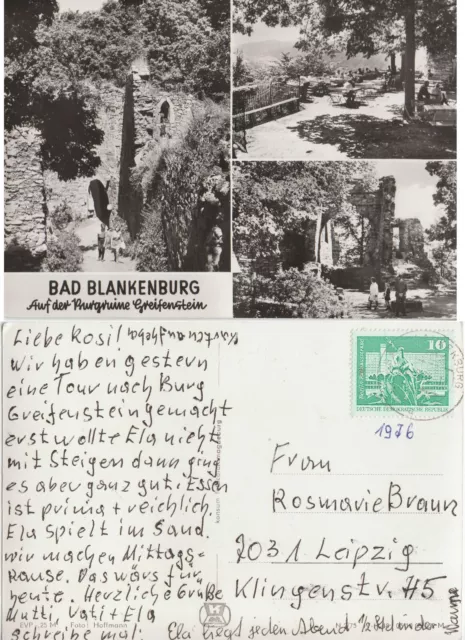 BAD BLANKENBURG
Auf der Burgruine Greifenstein
Liebe Rosi!
wir haben gestern
eine Tour nach Burg
Greifenstein gemacht
erst wollte Ela nicht
mit Steigen dann ging
es aber ganz gut. Essen
ist prima + reichlich.
Ela spielt im Sand.
wir machen Mittags=
Pause. Das wärs für
heute. Herzliche Grüße
Mutti Vati + Ela
schreibe mal.
Ela liegt jeden Abend
10
DEUTSCHE DEMOKRATISCHE REPUBLIK
1976
Frau
Rosmarie Braun
7031 Leipzig
Klingenstr. 45
Foto: Hoffmann